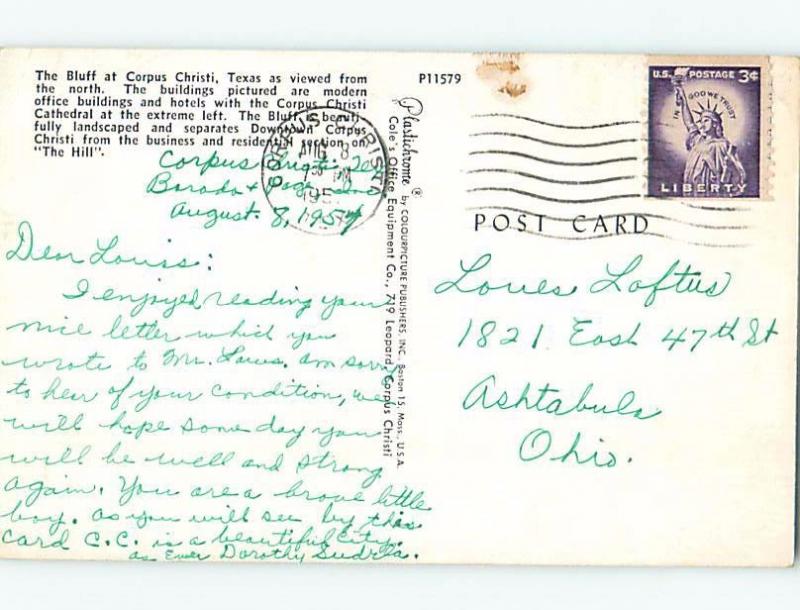 The Bluff at Corpus Christi, Texas as viewed from
the north. The buildings pictured are modern
office buildings and hotels with the Corpus Christi
Cathedral at the extreme left. The Bluff is beauti-
fully landscaped and separates Downtown Corpus
Christi from the business and residential section on
"The Hill".
P11579
Corpus Christi Tex
August 8, 1957
Dear Louis:
I enjoyed reading your
nice letter which you
wrote to Mr. Laws. am sorry
to hear of your condition, we
will hope some day you
will be well and strong
again. You are a brave little
boy. as you will see by this
card C.C. is a beautiful City.
as Ever Dorothy
Plastichrome ® by COLOURPICTURE PUBLISHERS, INC., Boston 15, Mass., U.S.A.
Cole's Office Equipment Co., 719 Leopard, Corpus Christi
CORPUS CHRISTI
AUG 8
PM
195
U.S. POSTAGE 3¢
IN GOD WE TRUST
LIBERTY
POST CARD
Loues Loftus
1821 East 47th St
Ashtabula
Ohio.